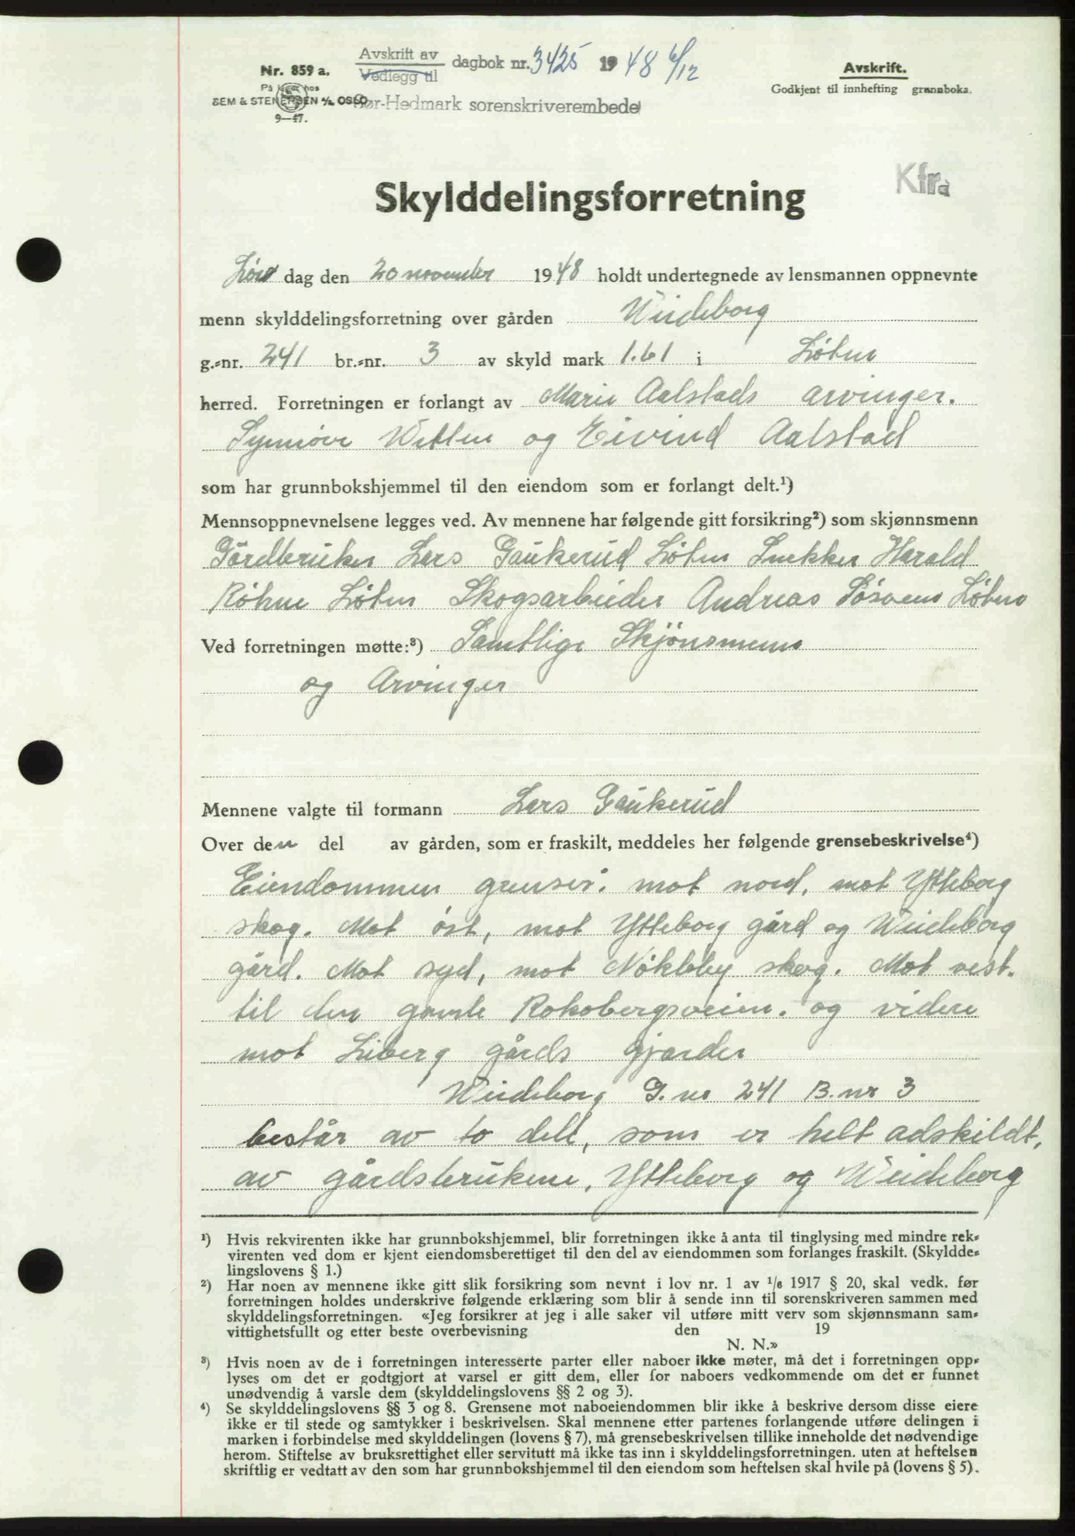 Nr. 859 a.
På lager hos
SEM & STENERSEN A/S, OSLO
9—47.
Avskrift av
Vedlegg til
dagbok nr. 3425 1948 6/12
Sør-Hedmark sorenskriverembede
Avskrift.
Godkjent til innhefting grunnboka.
Skylddelingsforretning
Kfra
Lør dag den 20 november 1948 holdt undertegnede av lensmannen oppnevnte
menn skylddelingsforretning over gården Windeborg
g.-nr. 241 br.-nr. 3 av skyld mark 1.61 i Løten
herred. Forretningen er forlangt av Marie Aalstads arvinger.
Synnöve Wetten og Eivind Aalstad
som har grunnbokshjemmel til den eiendom som er forlangt delt.¹)
Mennsoppnevnelsene legges ved. Av mennene har følgende gitt forsikring²) som skjønnsmenn
Gårdbruker Lars Gaukerud Löten Snekker Harald
Röhne Löten Skogsarbeider Andreas Löten
Ved forretningen møtte:³) Samtlige Skjönsmenn
og Arvinger
Mennene valgte til formann Lars Gaukerud
Over den del av gården, som er fraskilt, meddeles her følgende grensebeskrivelse⁴)
Eiendommen grenser: mot nord, mot Ytteborg
skog. Mot öst, mot Ytteborg gård og Windeborg
gård. Mot syd, mot Nökleby skog. Mot vest.
til den gamle Rokobergsveien. og videre
mot Liberg gårds gjærder
Windeborg G. nr 241 B. nr 3
består av to dele, som er helt adskildt,
av gårdsbrukene, Ytteborg og Windeborg
¹) Hvis rekvirenten ikke har grunnbokshjemmel, blir forretningen ikke å anta til tinglysing med mindre rek-
virenten ved dom er kjent eiendomsberettiget til den del av eiendommen som forlanges fraskilt. (Skyldde-
lingslovens § 1.)
²) Har noen av mennene ikke gitt slik forsikring som nevnt i lov nr. 1 av 1/6 1917 § 20, skal vedk. før
forretningen holdes underskrive følgende erklæring som blir å sende inn til sorenskriveren sammen med
skylddelingsforretningen. «Jeg forsikrer at jeg i alle saker vil utføre mitt verv som skjønnsmann sam-
vittighetsfullt og etter beste overbevisning den 19
N. N.»
³) Hvis noen av de i forretningen interesserte parter eller naboer ikke møter, må det i forretningen opp-
lyses om det er godtgjort at varsel er gitt dem, eller for naboers vedkommende om det er funnet
unødvendig å varsle dem (skylddelingslovens §§ 2 og 3).
⁴) Se skylddelingslovens §§ 3 og 8. Grensene mot naboeiendommen blir ikke å beskrive dersom disse eiere
ikke er til stede og samtykker i beskrivelsen. Skal mennene etter partenes forlangende utføre delingen i
marken i forbindelse med skylddelingen (lovens § 7), må grensebeskrivelsen tillike inneholde det nødvendige
herom. Stiftelse av bruksrettighet eller servitutt må ikke tas inn i skylddelingsforretningen, uten at heftelsen
skriftlig er vedtatt av den som har grunnbokshjemmel til den eiendom som heftelsen skal hvile på (lovens § 5).